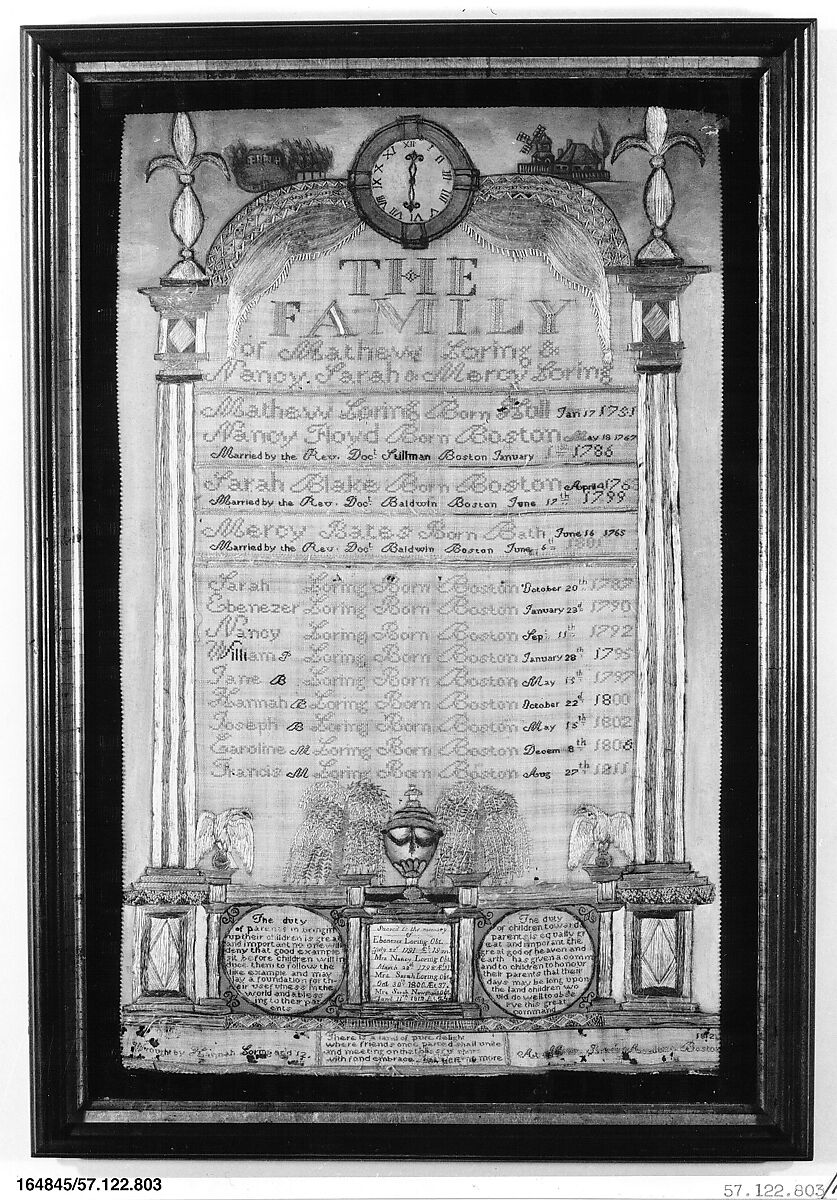 XII I II III IIII V VI VII VIII IX X XI
THE
FAMILY
of Mathew Loring &
Nancy Sarah & Mercy Loring
Mathew Loring Born Hull Jan 17 1751
Nancy Floyd Born Boston May 18 1767
Married by the Rev. Doct Stillman Boston January 1786
Sarah Blake Born Boston April 4 176
Married by the Rev. Doct Baldwin Boston June 17th 1799
Mercy Bates Born Bath June 16 1765
Married by the Rev. Doct Baldwin Boston June 6th
Sarah Loring Born Boston October 20th 1787
Ebenezer Loring Born Boston January 23d 1790
Nancy Loring Born Boston Sep 11th 1792
William P Loring Born Boston January 28th 1795
Jane B Loring Born Boston May 13th 1797
Hannah B Loring Born Boston October 22d 1800
Joseph B Loring Born Boston May 15th 1802
Caroline M Loring Born Boston Decem 8th 1808
Francis M Loring Born Boston Aug 27th 1811
The duty
of parents in bringing
up their children is great
and important no one will
deny that good example
sit before children will in
duce them to follow the
like example and may
lay a foundation for th
eir usefulness in the
world and a bless
ing to their par
ents
Sacred to the memory
of
Ebenezer Loring Obt.
Mrs. Nancy Loring Obt.
March 1798
Mrs. Sarah Loring Obt.
Oct 30 1800 Æt 37
Mrs. Sarah
1812
The duty
of children towards
parents is equally gr
eat and important the
great god of heaven and
earth has given a comm
and to children to honour
their parents that their
days may be long upon
the land children wo
uld do well to obse
rve this great
command
Wrought by Hannah Loring aged 12
There is a land of pure delight
where friends once parted shall unite
and meeting on that
with fond embrace more
At Academy Boston
1812
164845/57.122.803
57.122.803